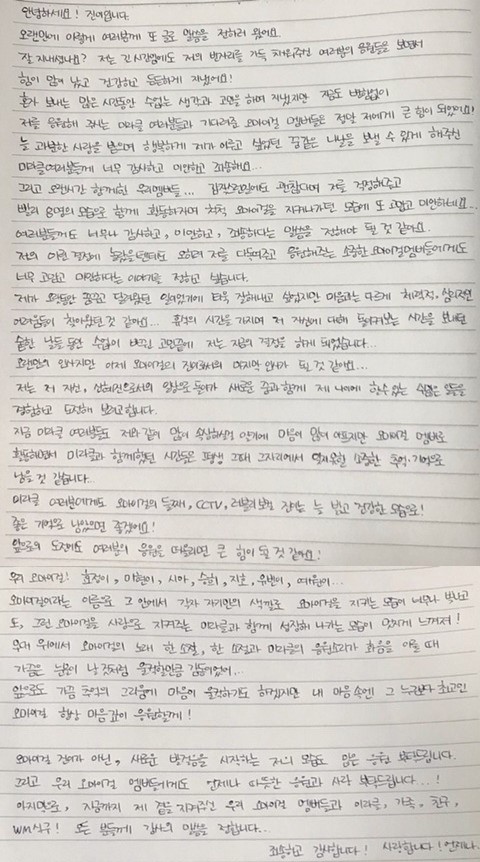 안녕하세요! 진이입니다.
오랜만에 이렇게 여러분께 또 글로 말씀을 전하러 왔어요.
잘 지내셨나요? 저는 긴 시간임에도 저의 빈자리를 가득 채워주신 여러분의 응원들을 보면서
힘이 많이 났고 건강하고 든든하게 지냈어요!
혼자 보내는 많은 시간동안 수없는 생각과 고민을 하며 지냈지만 지금도 변함없이
저를 응원해 주시는 미라클 여러분들과 기다려준 오마이걸 멤버들은 정말 저에게 큰 힘이 되었어요!
늘 과분한 사랑을 받으며 행복하게 제가 이루고 싶었던 꿈같은 나날을 보낼 수 있게 해주신
미라클여러분들께 너무 감사하고 미안하고 죄송해요...
그리고 오랜시간 함께한 우리멤버들... 갑작스러웠어도 괜찮다며 저를 걱정해주고
빈리 8명의 모습으로 함께 활동하자며 척척 오마이걸을 지켜나가던 모습에 또 고맙고 미안하네요...
여러분들께도 너무나 감사하고, 미안하고, 죄송하다는 말씀을 전해야 될 것 같아요.
저의 이런 결정에 놀랐을텐데도 오히려 저를 다독여주고 응원해주는 소중한 오마이걸멤버들에게도
너무 고맙고 미안하다는 이야기를 전하고 싶습니다.
제가 오랫동안 꿈꾸고 달려왔던 일이었기에 더욱 잘해내고 싶었지만 마음과는 다르게 체력적, 심리적인
어려움들이 찾아왔던 것 같아요... 휴식의 시간을 가지며 제 자신에 대해 돌아켜보는 시간을 보내던
숱한 날들 동안 수없이 반복된 고민끝에 저는 지금의 결정을 하게 되었습니다...
오랜만의 인사지만 이제 오마이걸의 진이로서의 마지막 인사가 될 것 같아요...
저는 저 자신, 신혜진으로서의 일상으로 돌아가 새로운 꿈과 함께 제 나이에 할수있는 수많은 일들을
경험하고 도전해 보려고합니다.
지금 미라클 여러분들도 저와 같이 많이 속상하셨을 것이기에 마음이 많이 아프지만 오마이걸 멤버로
활동하면서 미라클과 함께했던 시간들은 평생 그때 그자리에서 잊지못할 소중한 추억·기억으로
남을 것 같습니다..
미라클 여러분에게도 오마이걸의 둘째, CCTV, 러블리보컬 진이는 늘 밝고 건강한 모습으로!
좋은 기억으로 남았으면 좋겠어요!
앞으로의 도전에도 여러분의 응원을 떠올리면 큰 힘이 될 것 같아요!
우리 오마이걸! 효정이, 미현이, 시아, 승희, 지호, 유빈이, 예원이...
오마이걸이라는 이름으로 그 안에서 각자 자기만의 색깔로 오마이걸을 지키는 모습이 너무나 빛나고
또, 그런 오마이걸을 사랑으로 지켜주는 미라클과 함께 성장해 나가는 모습이 멋지게 느껴져!
무대 위에서 오마이걸의 노래 한 소절, 한 소절과 미라클의 응원소리가 화음을 이룰 때
가끔은 눈물이 날 것처럼 울컥할만큼 감동이었어...
앞으로도 가끔 추억의 그리움에 마음이 울컥하기도 하겠지만 내 마음속엔 그 누구보다 최고인
오마이걸 항상 마음깊이 응원할게!
오마이걸 진이가 아닌, 새로운 발걸음을 시작하는 저의 모습도 많은 응원 부탁드립니다.
그리고 우리 오마이걸 멤버들에게도 언제나 따뜻한 응원과 사랑 부탁드립니다...!
마지막으로, 지금까지 제 곁을 지켜주신 우리 오마이걸 멤버들과 미라클, 가족, 친구,
WM식구! 모든 분들께 감사의 말씀을 전합니다..
죄송하고 감사합니다! 사랑합니다! 언제나.